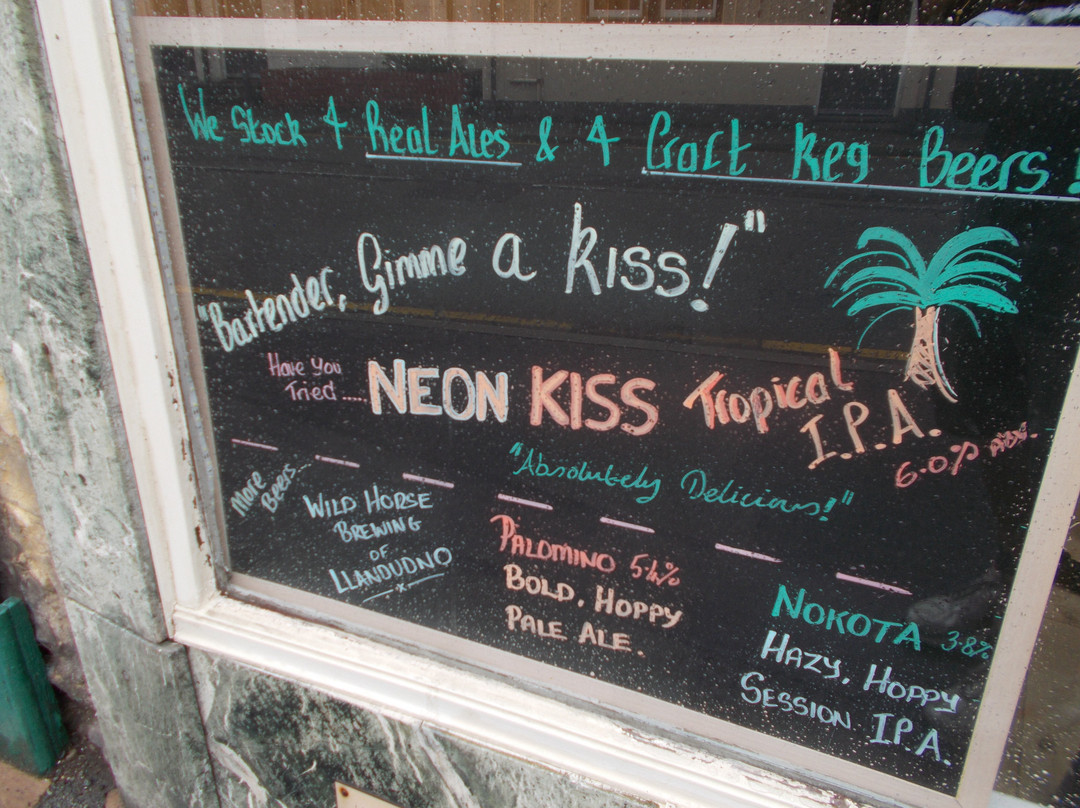 We Stock 4 Real Ales & 4 Craft Keg Beers!
"Bartender, Gimme a Kiss!"
Have You
Tried .... NEON KISS Tropical
I.P.A.
6.0% ABV.
"Absolutely Delicious!"
More
Beers...
WILD HORSE
BREWING
OF
LLANDUDNO
PALOMINO
BOLD, HOPPY
PALE ALE.
NOKOTA 3.8%
HAZY, HOPPY
SESSION I.P.A.